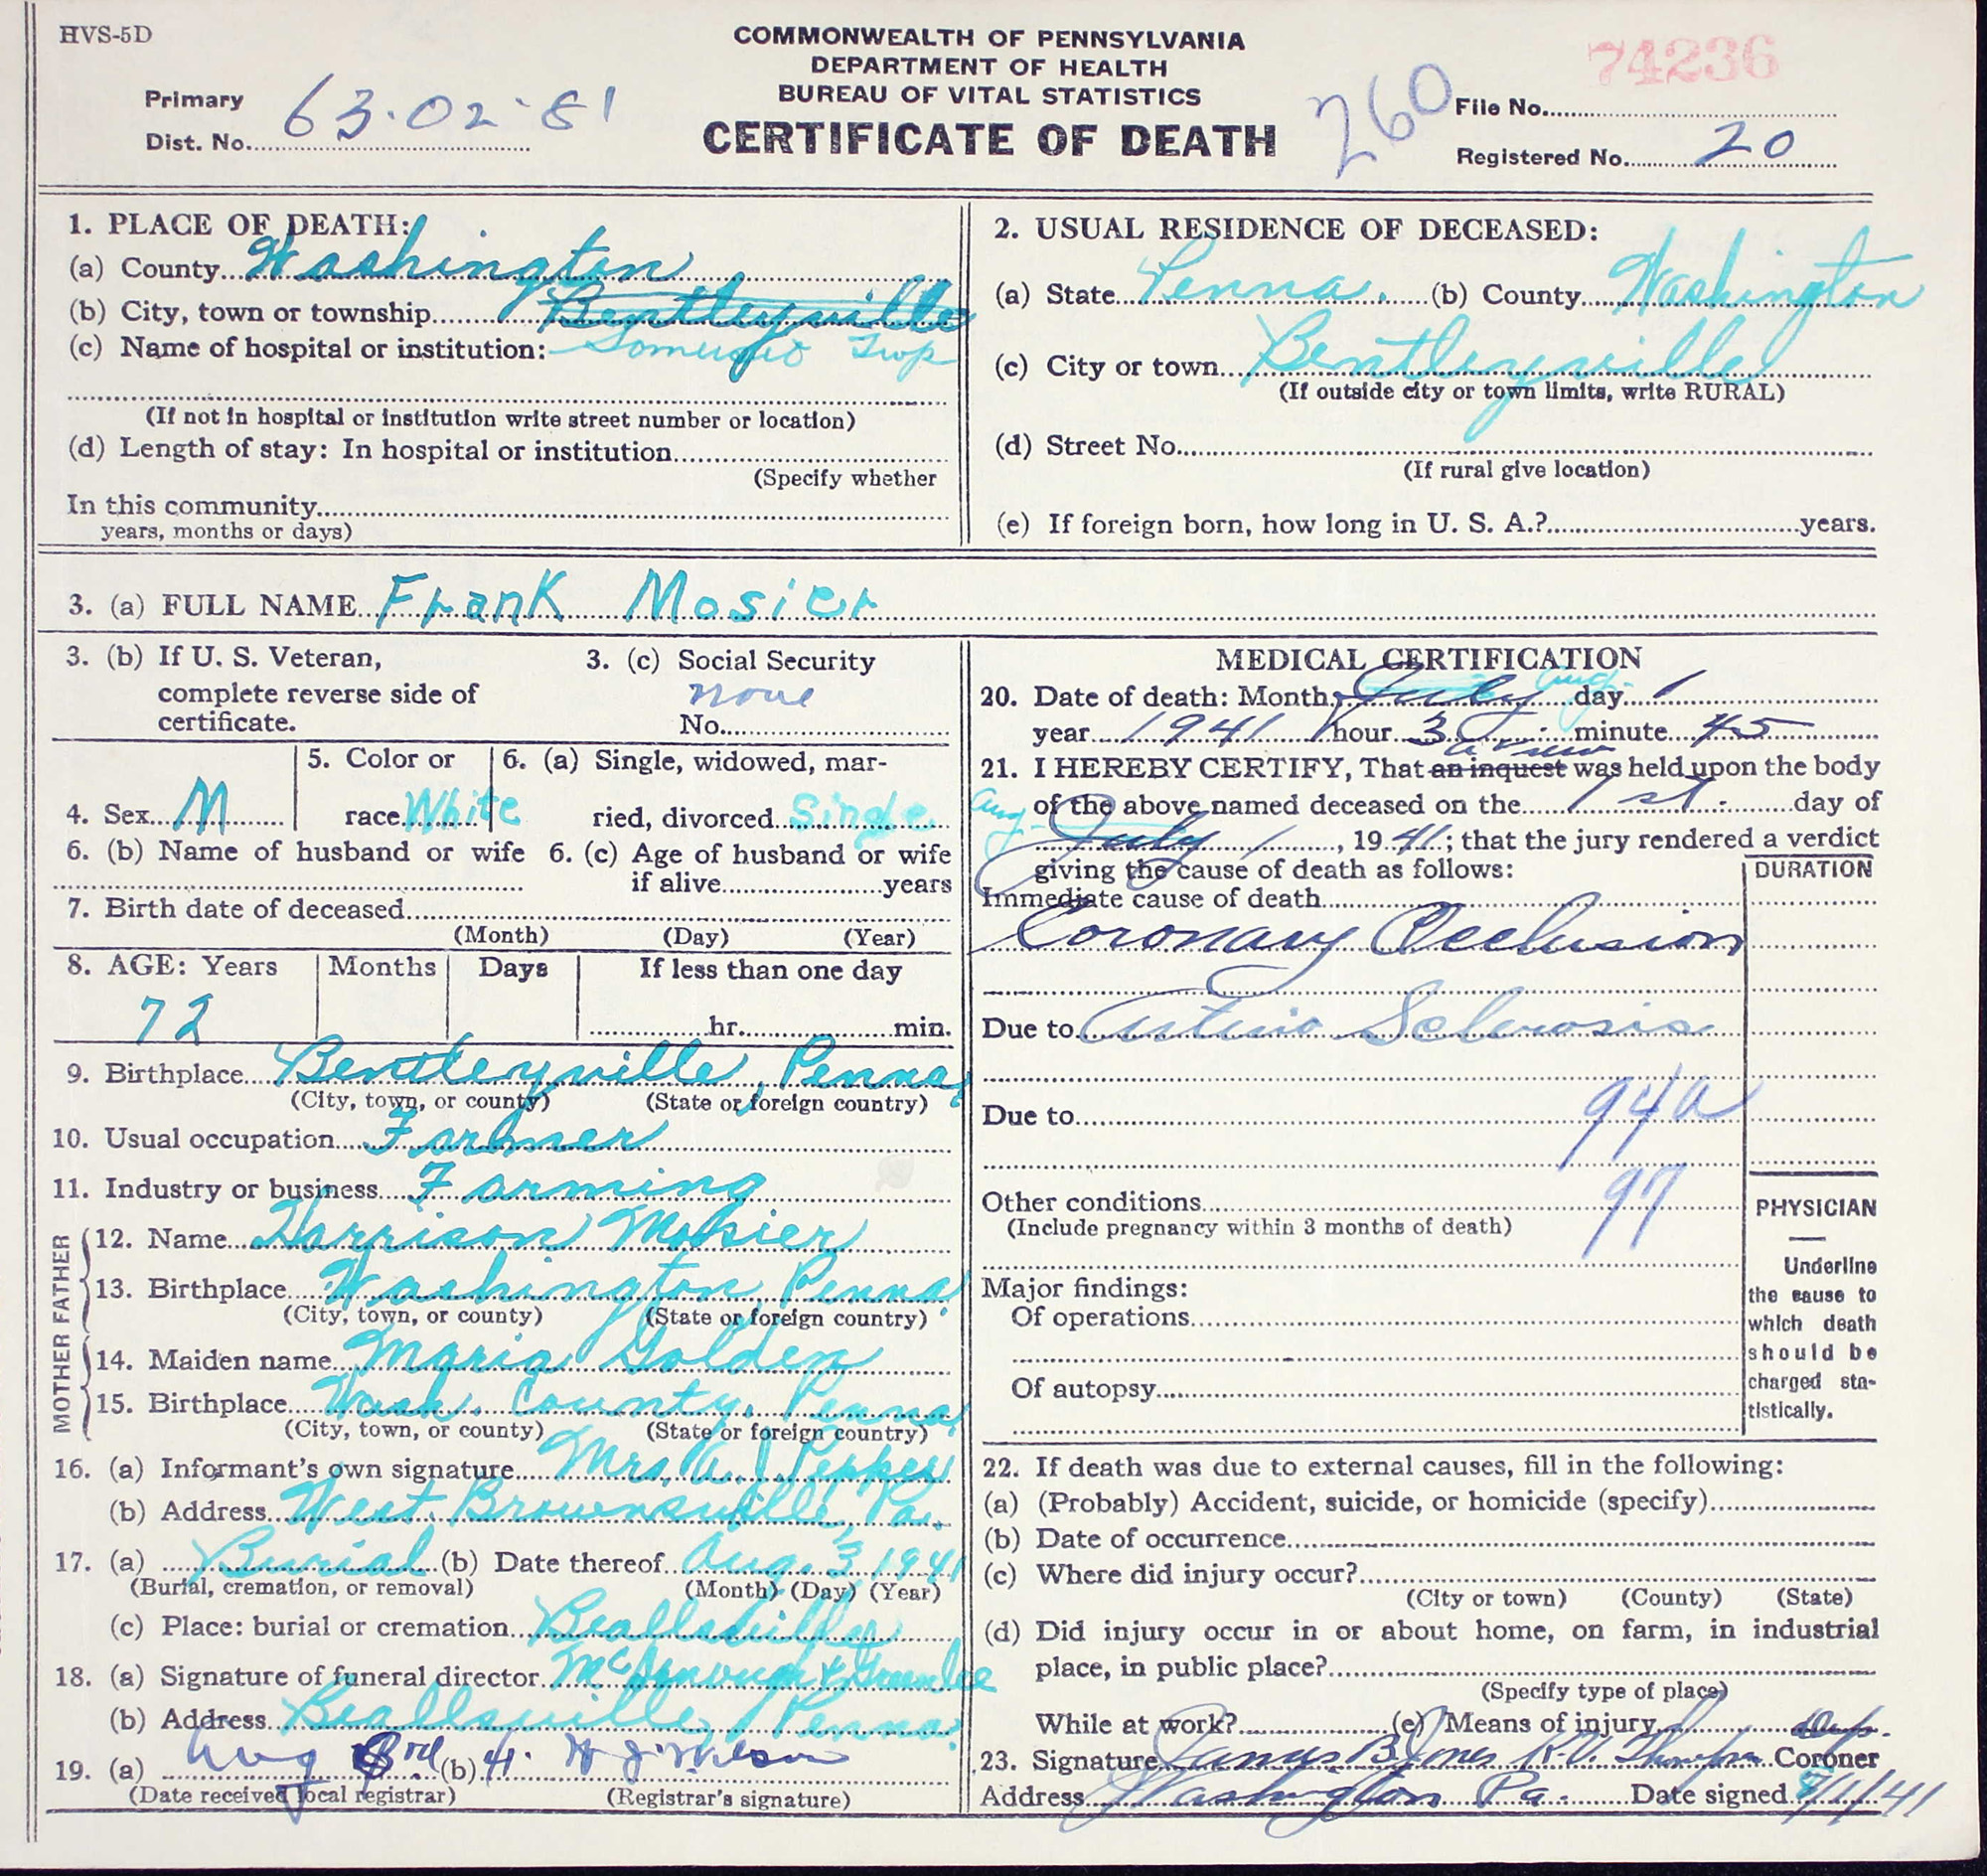 HVS-5D
COMMONWEALTH OF PENNSYLVANIA
DEPARTMENT OF HEALTH
BUREAU OF VITAL STATISTICS
CERTIFICATE OF DEATH
Primary
Dist. No. 63-02-81
260
74236
File No.
Registered No. 20
1. PLACE OF DEATH:
(a) County Washington
(b) City, town or township Bentleyville
(c) Name of hospital or institution: Somerset Twp
(If not in hospital or institution write street number or location)
(d) Length of stay: In hospital or institution
(Specify whether
In this community
years, months or days)
2. USUAL RESIDENCE OF DECEASED:
(a) State Penna. (b) County Washington
(c) City or town Bentleyville
(If outside city or town limits, write RURAL)
(d) Street No.
(If rural give location)
(e) If foreign born, how long in U. S. A.? years.
3. (a) FULL NAME Frank Mosier
3. (b) If U. S. Veteran,
complete reverse side of
certificate.
3. (c) Social Security
none
No.
4. Sex M
5. Color or
race White
6. (a) Single, widowed, mar-
ried, divorced Single
6. (b) Name of husband or wife
6. (c) Age of husband or wife
if alive years
7. Birth date of deceased
(Month) (Day) (Year)
8. AGE: Years Months Days If less than one day
72 hr. min.
9. Birthplace Bentleyville, Penna,
(City, town, or county) (State or foreign country)
10. Usual occupation Farmer
11. Industry or business Farming
FATHER
12. Name Harrison Mosier
13. Birthplace Washington Penna.
(City, town, or county) (State or foreign country)
MOTHER
14. Maiden name Maria Golden
15. Birthplace Wash. County, Penna,
(City, town, or county) (State or foreign country)
16. (a) Informant's own signature Mrs. A. J. Pepper
(b) Address West Brownsville, Pa.
17. (a) Burial (b) Date thereof Aug. 3 1941
(Burial, cremation, or removal) (Month) (Day) (Year)
(c) Place: burial or cremation Beallsville
18. (a) Signature of funeral director McDonough & Greenlee
(b) Address Beallsville, Penna.
19. (a) Aug 3rd (b) 41.
(Date received local registrar) (Registrar's signature)
MEDICAL CERTIFICATION
20. Date of death: Month July Aug. day 1
year 1941 hour 3 minute 45
a view
21. I HEREBY CERTIFY, That an inquest was held upon the body
of the above named deceased on the 1st. day of
Aug. July, 1941; that the jury rendered a verdict
giving the cause of death as follows:
DURATION
Immediate cause of death
Coronary Occlusion
Due to Arterio Sclerosis
Due to 94a
Other conditions 97
(Include pregnancy within 3 months of death)
Major findings:
Of operations
Of autopsy
PHYSICIAN
Underline
the cause to
which death
should be
charged sta-
tistically.
22. If death was due to external causes, fill in the following:
(a) (Probably) Accident, suicide, or homicide (specify)
(b) Date of occurrence
(c) Where did injury occur?
(City or town) (County) (State)
(d) Did injury occur in or about home, on farm, in industrial
place, in public place?
(Specify type of place)
While at work? (e) Means of injury
Dep.
23. Signature James B. Jones Coroner
Address Washington Pa. Date signed 8/1/41